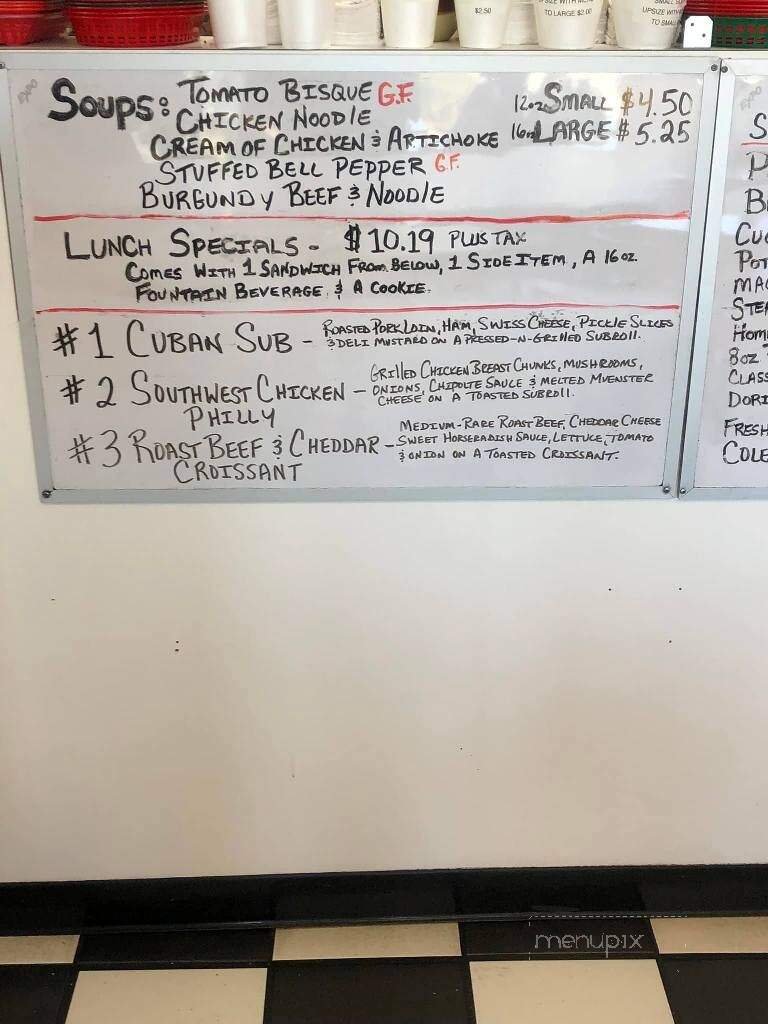 $2.50
TO LARGE $2.00
UPSIZE WITH
TO SMALL
EXPO
SOUPS: TOMATO BISQUE G.F.
CHICKEN NOODLE
CREAM OF CHICKEN & ARTICHOKE
STUFFED BELL PEPPER G.F.
BURGUNDY BEEF & NOODLE
12oz SMALL $4.50
16oz LARGE $5.25
LUNCH SPECIALS - $10.19 PLUS TAX
COMES WITH 1 SANDWICH FROM BELOW, 1 SIDE ITEM, A 16 oz.
FOUNTAIN BEVERAGE & A COOKIE.
#1 CUBAN SUB - ROASTED PORK LOIN, HAM, SWISS CHEESE, PICKLE SLICES
& DELI MUSTARD ON A PRESSED-N-GRILLED SUBROLL.
#2 SOUTHWEST CHICKEN PHILLY - GRILLED CHICKEN BREAST CHUNKS, MUSHROOMS,
ONIONS, CHIPOLTE SAUCE & MELTED MUENSTER
CHEESE ON A TOASTED SUBROLL.
#3 ROAST BEEF & CHEDDAR CROISSANT - MEDIUM-RARE ROAST BEEF, CHEDDAR CHEESE
SWEET HORSERADISH SAUCE, LETTUCE, TOMATO
& ONION ON A TOASTED CROISSANT.
EXPO
S
P
B
CU
POT
MAC
STEA
HOM
8oz
CLASS
DORI
FRESH
COLE
menupix